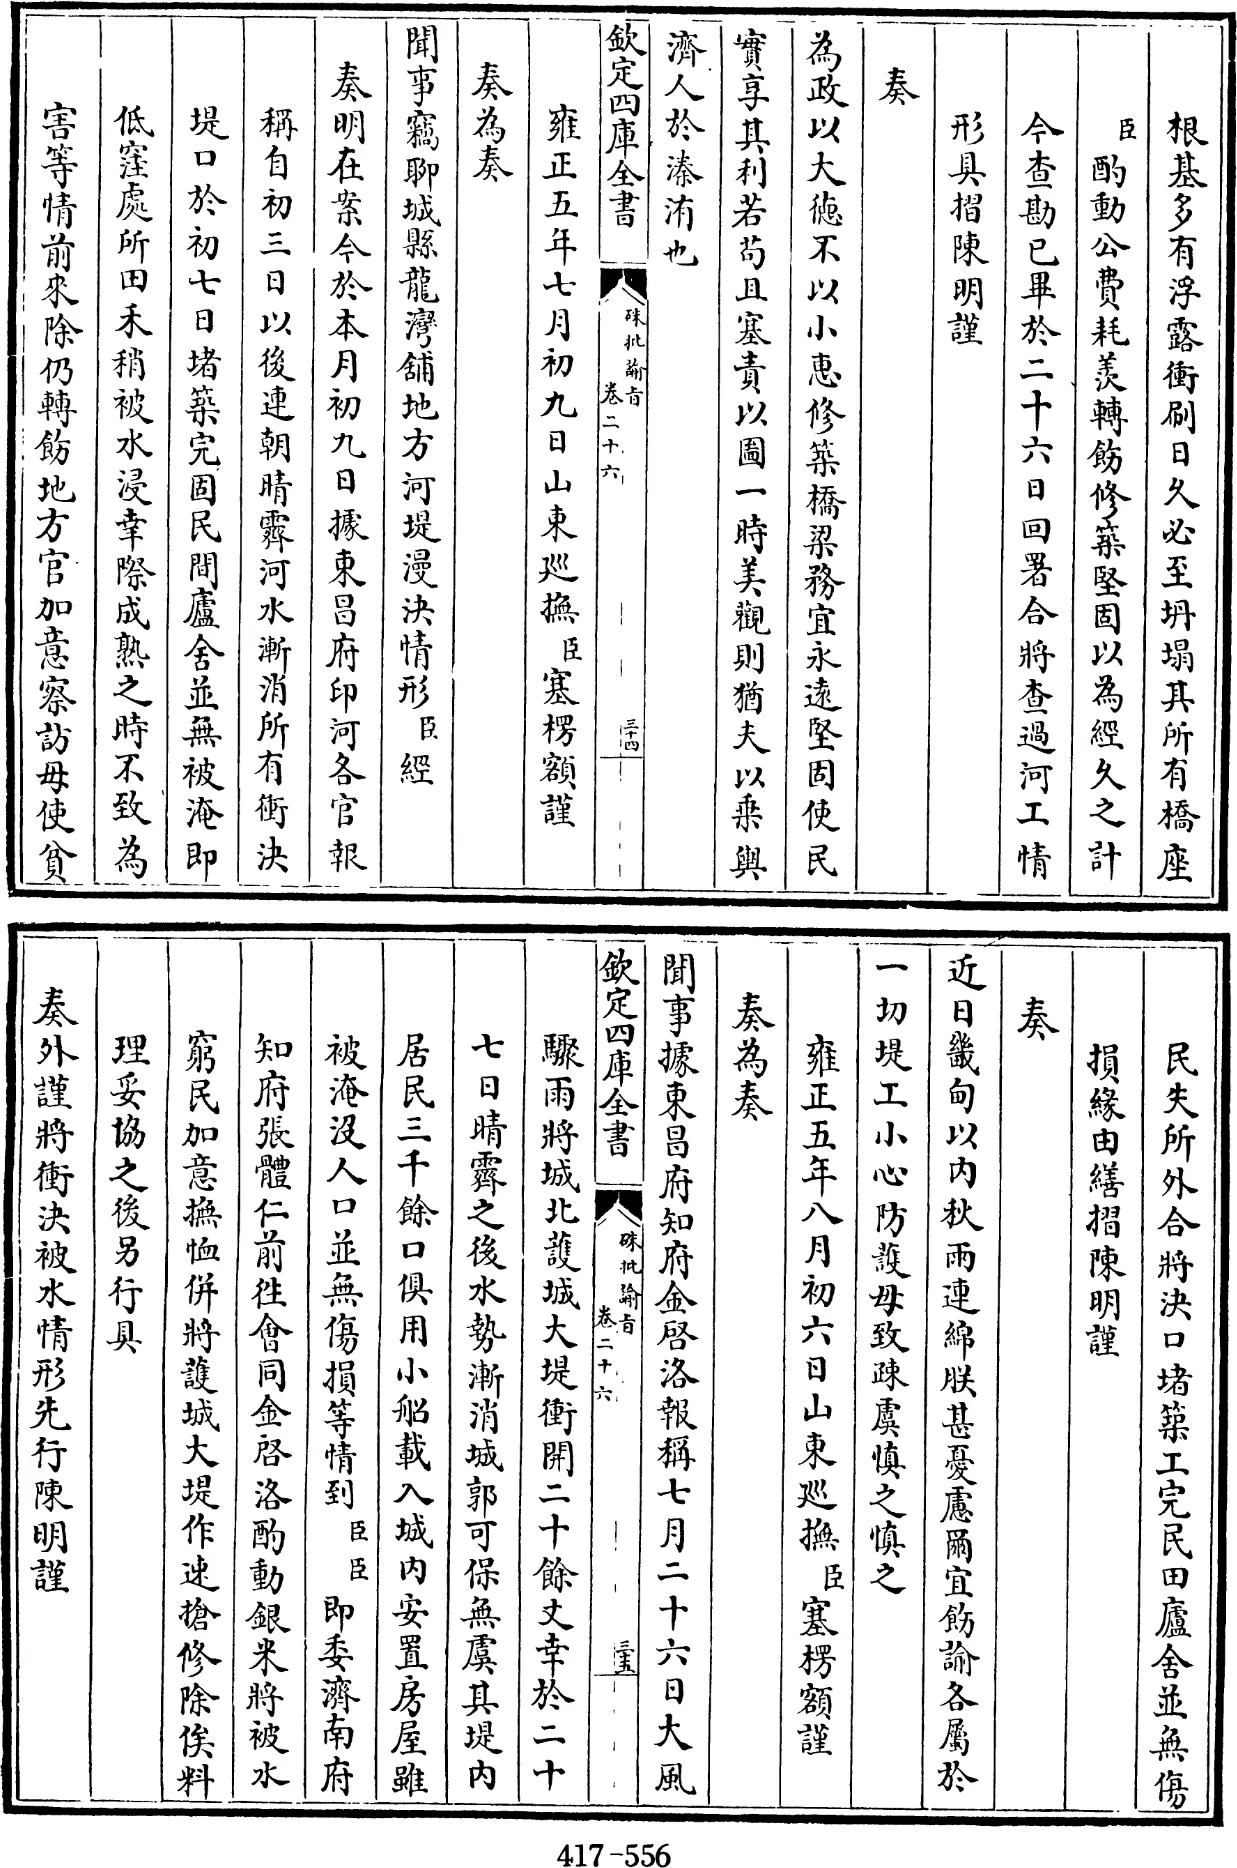 根基多有浮露衝刷日久必至坍塌其所有橋座
臣酌動公費耗羨轉飭修築堅固以為經久之計
今查勘已畢於二十六日回署合將查過河工情
形具摺陳明謹
奏
為政以大徳不以小惠修築橋梁務宜永遠堅固使民
實享其利若苟且塞責以圖一時美觀則猶夫以乗輿
濟人於溱洧也
欽定四庫全書
硃批諭旨
卷二十六
三十四
雍正五年七月初九日山東廵撫臣塞楞額謹
奏為奏
聞事竊聊城縣龍灣舖地方河堤漫決情形臣經
奏明在案今於本月初九日據東昌府印河各官報
稱自初三日以後連朝晴霽河水漸消所有衝決
堤口於初七日堵築完固民間廬舍並無被淹即
低窪處所田禾稍被水浸幸際成熟之時不致為
害等情前來除仍轉飭地方官加意察訪毋使貧
民失所外合將決口堵築工完民田廬舍並無傷
損緣由繕摺陳明謹
奏
近日畿甸以内秋雨連綿朕甚憂慮爾宜飭諭各屬於
一切堤工小心防護毋致疎虞慎之慎之
雍正五年八月初六日山東廵撫臣塞楞額謹
奏為奏
聞事據東昌府知府金啓洛報稱七月二十六日大風
欽定四庫全書
硃批諭旨
卷二十六
三十五
驟雨將城北護城大堤衝開二十餘丈幸於二十
七日晴霽之後水勢漸消城郭可保無虞其堤内
居民三千餘口俱用小船載入城内安置房屋雖
被淹沒人口並無傷損等情到臣臣即委濟南府
知府張體仁前徃會同金啓洛酌動銀米將被水
窮民加意撫恤併將護城大堤作速搶修除俟料
理妥協之後另行具
奏外謹將衝決被水情形先行陳明謹
417-556